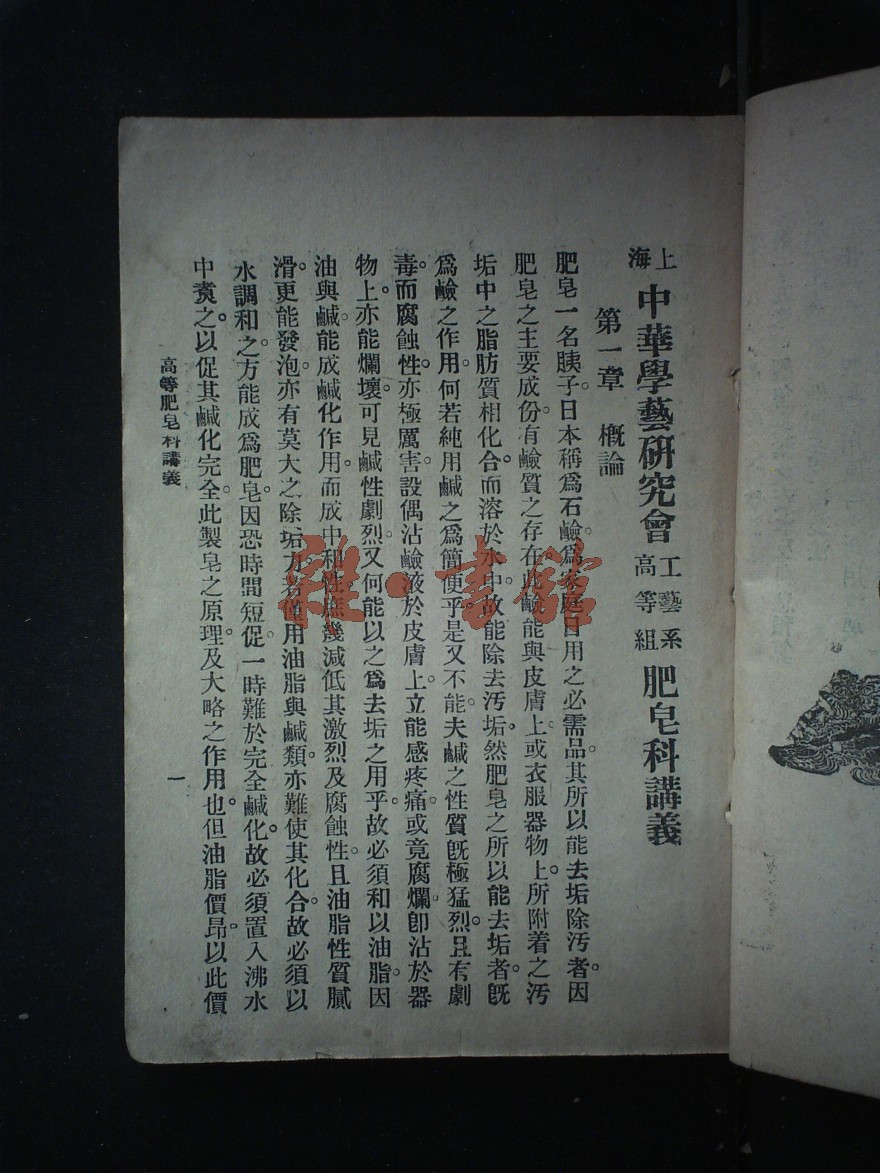 上海中華學藝研究會工藝系高等組肥皂科講義
第一章 概論
肥皂一名胰子。日本稱爲石鹼。爲家庭日用之必需品。其所以能去垢除汚者。因
肥皂之主要成份。有鹼質之存在。此鹼能與皮膚上或衣服器物上。所附着之汚
垢中之脂肪質相化合。而溶於水中。故能除去汚垢。然肥皂之所以能去垢者。旣
爲鹼之作用。何若純用鹹之爲簡便乎。是又不能。夫鹹之性質旣極猛烈。且有劇
毒。而腐蝕性。亦極厲害。設偶沾鹼液於皮膚上。立能感疼痛。或竟腐爛。卽沾於器
物上。亦能爛壞。可見鹹性劇烈。又何能以之爲去垢之用乎。故必須和以油脂。因
油與鹹。能成鹹化作用。而成中和性。庶幾減低其激烈及腐蝕性。且油脂性質膩
滑。更能發泡。亦有莫大之除垢力者。僅用油脂與鹹類。亦難使其化合。故必須以
水調和之。方能成爲肥皂。因恐時間短促。一時難於完全鹹化。故必須置入沸水
中煑之。以促其鹹化完全。此製皂之原理。及大略之作用也。但油脂價昂。以此價
高等肥皂科講義
一
雜·書館